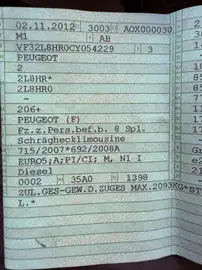 02.11.2012 3003 AOX00030
M1 AB
VF32L8HR0CY054229 3
PEUGEOT
2
2L8HR*
2L8HR0
-
206+
PEUGEOT (F)
Fz.z.Pers.bef.b. 8 Spl.
Schrägheckl​imousine
715/2007*692/2008A
EURO5;A;PI/CI; M, N1 I
Diesel
0002 35A0 1398
ZUL.GES-GEW.D.ZUGES MAX.2093KG*ST
L.*